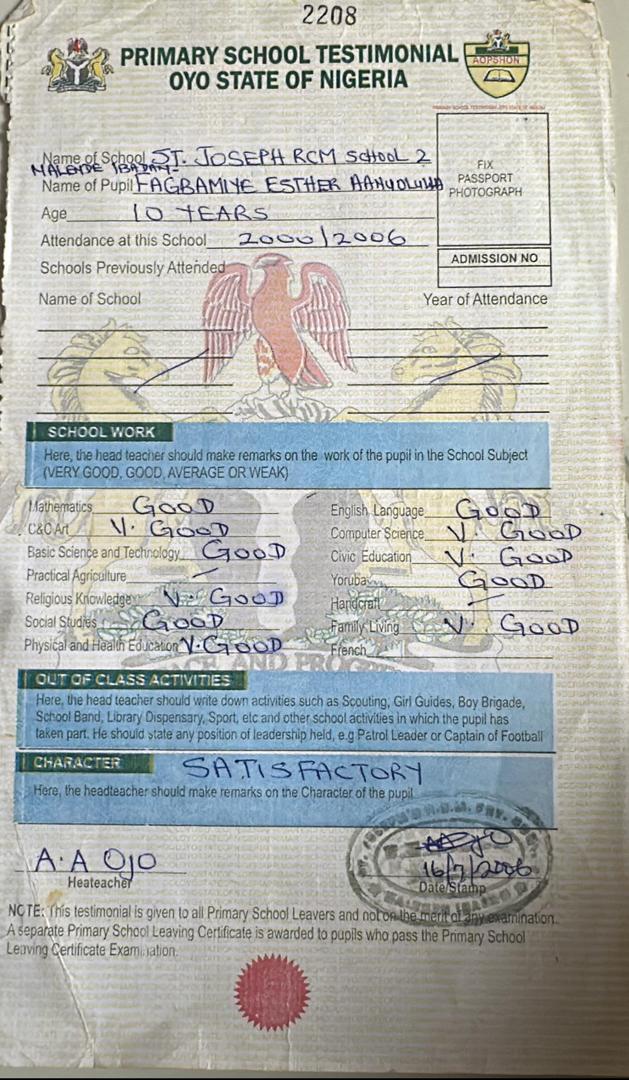 2208
PRIMARY SCHOOL TESTIMONIAL
OYO STATE OF NIGERIA
AOPSHON
Name of School ST. JOSEPH RCM School 2
MALENDE IBADAN
Name of Pupil FAGBAMIYE ESTHER
Age 10 YEARS
Attendance at this School 2000/2006
FIX
PASSPORT
PHOTOGRAPH
ADMISSION NO
Schools Previously Attended
Name of School Year of Attendance
SCHOOL WORK
Here, the head teacher should make remarks on the work of the pupil in the School Subject
(VERY GOOD, GOOD, AVERAGE OR WEAK)
Mathematics GOOD English Language GOOD
C&C Art V. GOOD Computer Science V. GOOD
Basic Science and Technology GOOD Civic Education V. GOOD
Practical Agriculture — Yoruba GOOD
Religious Knowledge V. GOOD Handcraft —
Social Studies GOOD Family Living V. GOOD
Physical and Health Education V. GOOD French
OUT OF CLASS ACTIVITIES
Here, the head teacher should write down activities such as Scouting, Girl Guides, Boy Brigade,
School Band, Library Dispensary, Sport, etc and other school activities in which the pupil has
taken part. He should state any position of leadership held, e.g Patrol Leader or Captain of Football
CHARACTER SATISFACTORY
Here, the headteacher should make remarks on the Character of the pupil
A. A Ojo 16/7/2006
Heateacher Date/Stamp
NOTE: This testimonial is given to all Primary School Leavers and not on the merit of any examination.
A separate Primary School Leaving Certificate is awarded to pupils who pass the Primary School
Leaving Certificate Examination.